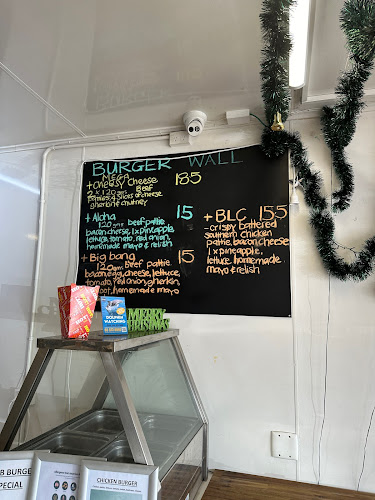 BURGER WALL
MEGA
+ Cheesy Cheese 18.5
2 x 120gm Beef
patties, 4 slices of cheese
gherkin chutney
+ Aloha 15
120gm beef pattie
bacon cheese, 1 x pineapple
lettuce, tomato, red onion,
homemade mayo & relish
+ Big bang 15
120gm Beef pattie
bacon, egg, cheese, lettuce,
tomato, red onion, gherkin,
homemade mayo
+ BLC 15.5
- crispy battered
southern chicken
pattie, bacon, cheese
1 x pineapple,
lettuce, homemade
mayo & relish
DOLPHIN
WATCHING
MERRY
CHRISTMAS
B BURGER
SPECIAL
CHICKEN BURGER